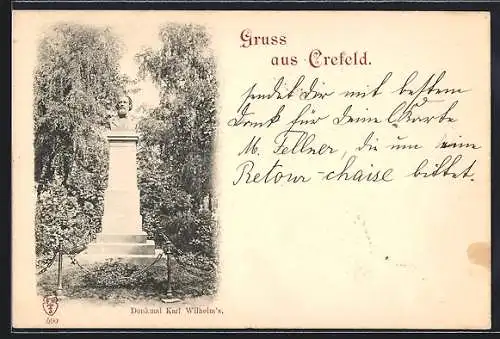 Gruss
aus Crefeld.
sendet Dir mit bestem
Dank für Deine l. Karte
M. Fellner, die um eine
Retour-chaise bittet.
Denkmal Karl Wilhelm's.